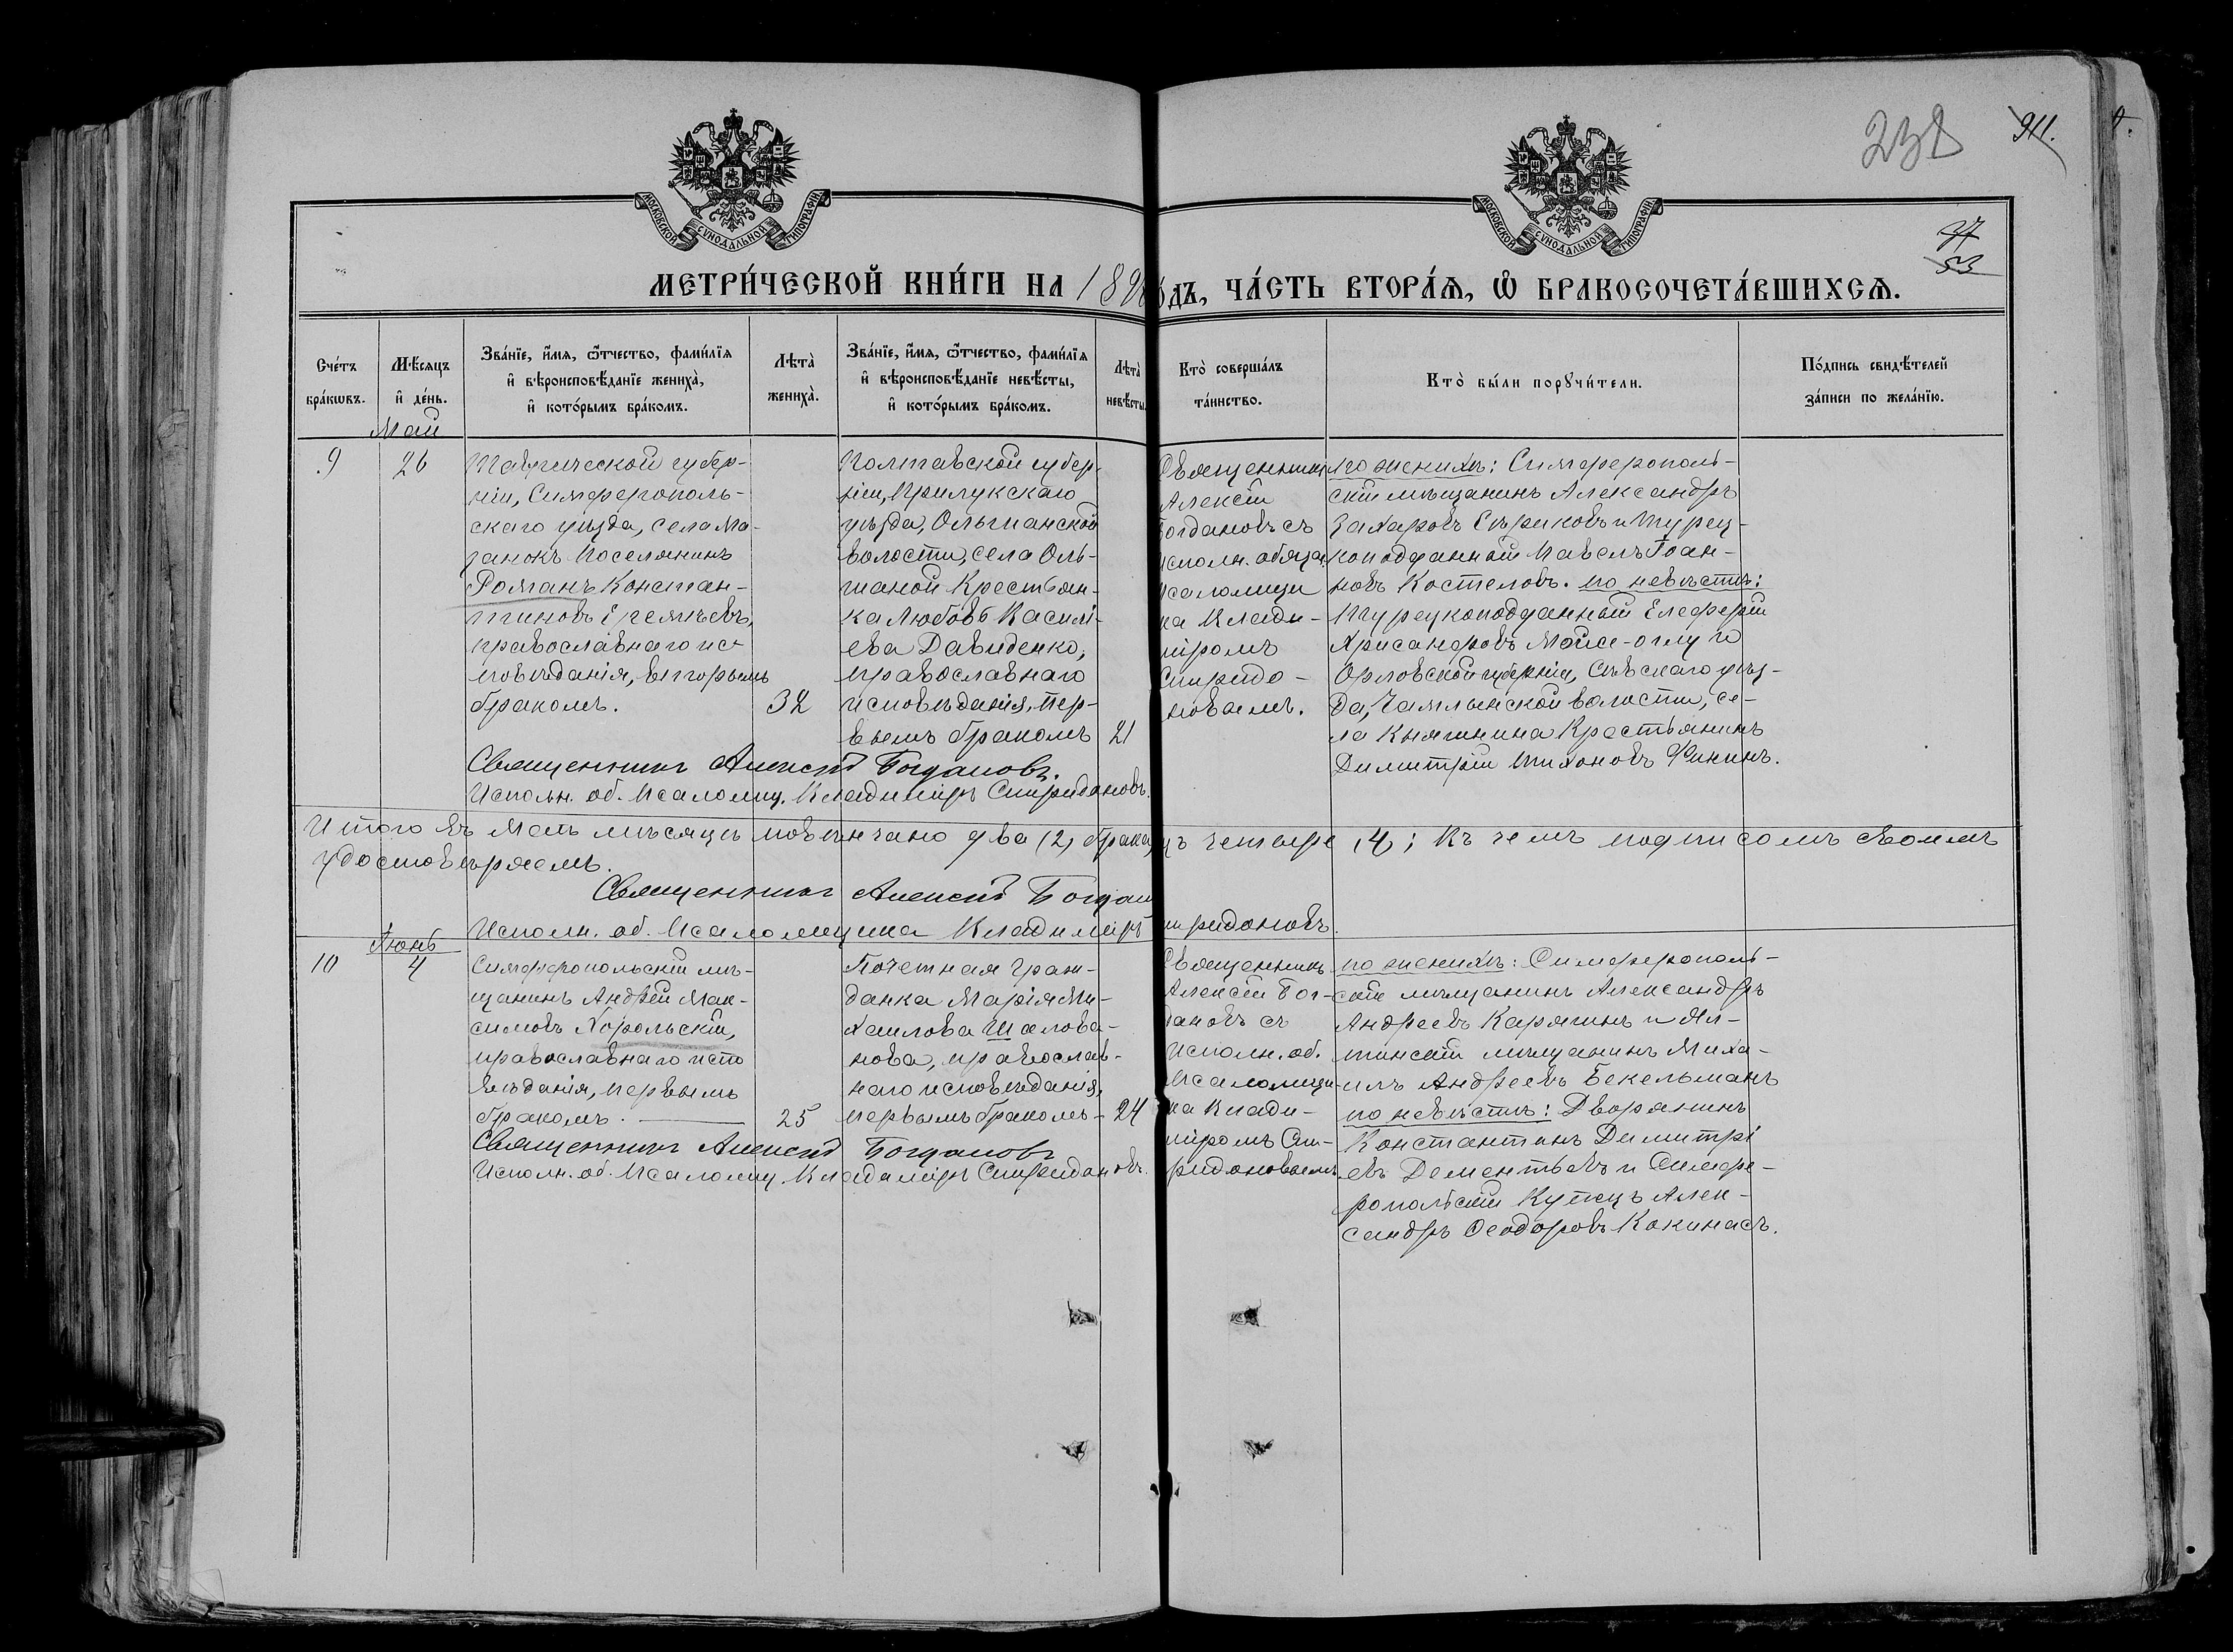 238
911.
МОСКОВСКОЙ СѴНОДАЛЬНОЙ ТИПОГРАФІИ
МОСКОВСКОЙ СѴНОДАЛЬНОЙ ТИПОГРАФІИ
37
53
МЕТРИ́ЧЕСКОЙ КНИ́ГИ НА 189
ОДЪ, ЧА́СТЬ ВТОРА́Я, Ѿ БРАКОСОЧЕТА́ВШИХСЯ.
Сче́тъ бра́кѡвъ.
Мѣ́сяцъ и҆ де́нь.
Зва́нїе, и҆́мя, ѻ҆́тчество, фами́лїя
и҆ вѣроисповѣ́данїе жениха̀,
и҆ кото́рымъ бра́комъ.
Лѣта̀ жениха̀.
Зва́нїе, и҆́мя, ѻ҆́тчество, фами́лїя
и҆ вѣроисповѣ́данїе невѣ́сты,
и҆ кото́рымъ бра́комъ.
Лѣта̀ невѣ́сты.
Кто̀ соверша́лъ
та́инство.
Кто̀ бы́ли порꙋчи́тели.
По́дпись свидѣ́телей
за́писи по жела́нїю.
Май
9
26
Таврической губер-
ніи, Симферополь-
скаго уѣзда, села Ма-
занокъ Поселянинъ
Романъ Констан-
тиновъ
православнаго ис-
повѣданія, вторымъ
бракомъ.
32
Полтавской губер-
ніи, Прилукскаго
уѣзда, Ольшанской
волости, села Оль-
шаной Крестьян-
ка Любовь Василі-
ева Давиденко,
православнаго
исповѣданія, пер-
вымъ бракомъ
21
Священникъ
Алексій
Богдановъ съ
исполн. обяза.
псаломщи
ка Влади-
міромъ
Спиридо-
новымъ.
по женихѣ: Симферополь-
скій мѣщанинъ Александръ
Захаровъ Сѣриковъ и Турец-
коподданный Павелъ Іоан-
новъ Костеловъ. по невѣстѣ:
Турецкоподданный Елеферій
Хрисандровъ и
Орловской губерніи, Сѣвскаго уѣз-
да, волости, се-
ла Княгинина Крестьянинъ
Димитрій Тихоновъ Фикинъ.
Священникъ Алексій Богдановъ.
Исполн. об. Псаломщ. Владиміръ Спиридоновъ.
Итого въ Маѣ мѣсяцѣ повѣнчано два (2) брака,
ъ четыре (4); къ чемъ подписомъ своимъ
удостовѣряемъ.
Священникъ Алексій Богдан
Исполн. об. Псаломщика Владиміръ
пиридоновъ.
Іюнь
10
4
Симферопольскій мѣ-
щанинъ Андрей Мак-
симовъ Хорольскій,
православнаго испо
вѣданія, первымъ
бракомъ.
25
Почетная Граж-
данка Марія Ми-
хаилова Шалова-
нова, православ-
наго исповѣданія,
первымъ бракомъ-
24
Священникъ
Алексій Бог-
дановъ съ
Исполн. об.
Псаломщи-
ка Влади-
міромъ Спи-
ридоновымъ.
по женихѣ: Симферополь-
скій мѣщанинъ Александръ
Андреевъ Карягинъ и Ял-
тинскій мѣщанинъ Миха-
илъ Андреевъ Бекельманъ
по невѣстѣ: Дворянинъ
Константинъ Димитрі
евъ Дементьевъ и Симфе-
ропольскій Купецъ Алек-
сандръ Ѳеодоровъ Кокинасъ.
Священникъ Алексій Богдановъ
Исполн. об. Псаломщ. Владиміръ Спиридоновъ.